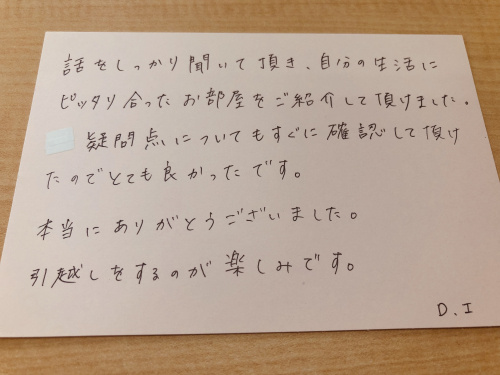 話をしっかり聞いて頂き、自分の生活に
ピッタリ合ったお部屋をご紹介して頂けました。
疑問点についてもすぐに確認して頂け
たのでとても良かったです。
本当にありがとうございました。
引越しをするのが楽しみです。
D.I